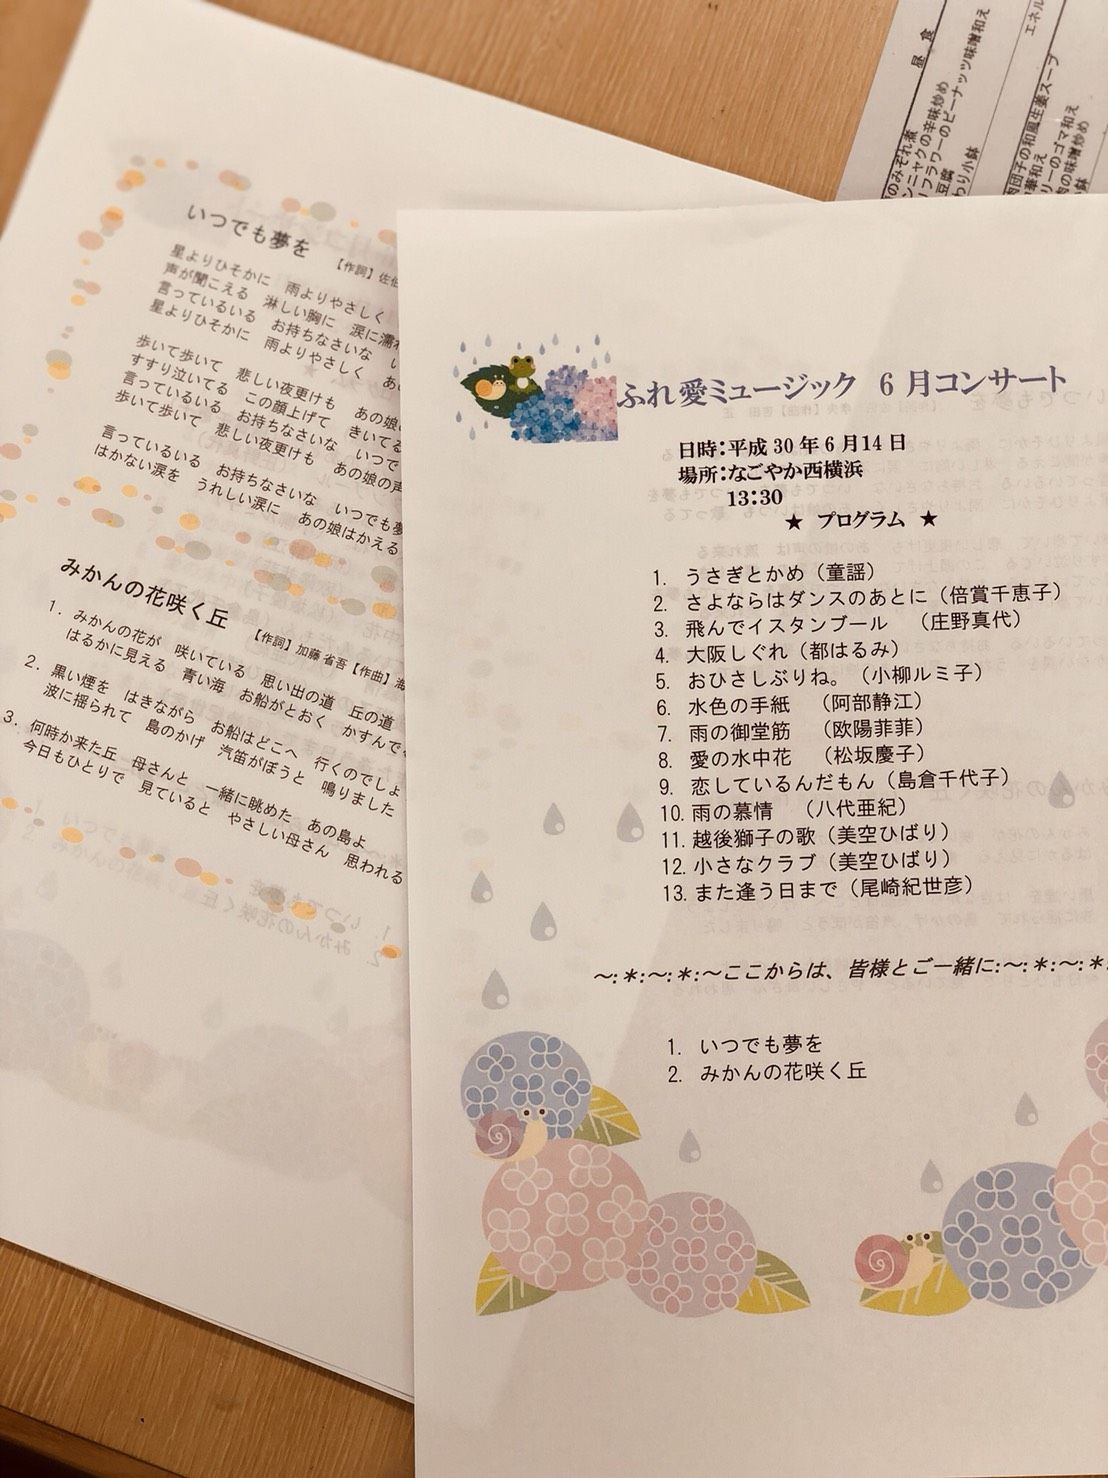 ふれ愛ミュージック 6月コンサート
日時:平成30年6月14日
場所:なごやか西横浜
13:30
★ プログラム ★
1. うさぎとかめ(童謡)
2. さよならはダンスのあとに(倍賞千恵子)
3. 飛んでイスタンブール (庄野真代)
4. 大阪しぐれ(都はるみ)
5. おひさしぶりね。(小柳ルミ子)
6. 水色の手紙 (阿部静江)
7. 雨の御堂筋 (欧陽菲菲)
8. 愛の水中花 (松坂慶子)
9. 恋しているんだもん(島倉千代子)
10. 雨の慕情 (八代亜紀)
11. 越後獅子の歌(美空ひばり)
12. 小さなクラブ(美空ひばり)
13. また逢う日まで(尾崎紀世彦)
~:*:~:*:~ここからは、皆様とご一緒に:~:*:~:*:
1. いつでも夢を
2. みかんの花咲く丘
いつでも夢を 【作詞】佐伯
星よりひそかに 雨よりやさしく
声が聞こえる 淋しい胸に 涙に濡れ
言っているいる お持ちなさいな い
星よりひそかに 雨よりやさしく あ
歩いて歩いて 悲しい夜更けも あの娘の
すすり泣いてる この顔上げて きいてる
言っているいる お持ちなさいな いつで
歩いて歩いて 悲しい夜更けも あの娘の声
言っているいる お持ちなさいな いつでも夢
はかない涙を うれしい涙に あの娘はかえる
みかんの花咲く丘 【作詞】加藤 省吾【作曲】海
1. みかんの花が 咲いている 思い出の道 丘の道
はるかに見える 青い海 お船がとおく かすんで
2. 黒い煙を はきながら お船はどこへ 行くのでしょ
波に揺られて 島のかげ 汽笛がぼうと 鳴りました
3. 何時か来た丘 母さんと 一緒に眺めた あの島よ
今日もひとりで 見ていると やさしい母さん 思われる
昼 食
のみぞれ煮
ンニャクの辛味炒め
フラワーのピーナッツ味噌和え
豆腐
わり小鉢
エネル
肉団子の和風生姜スープ
華和え
リーのゴマ和え
肉の味噌炒め
鉢